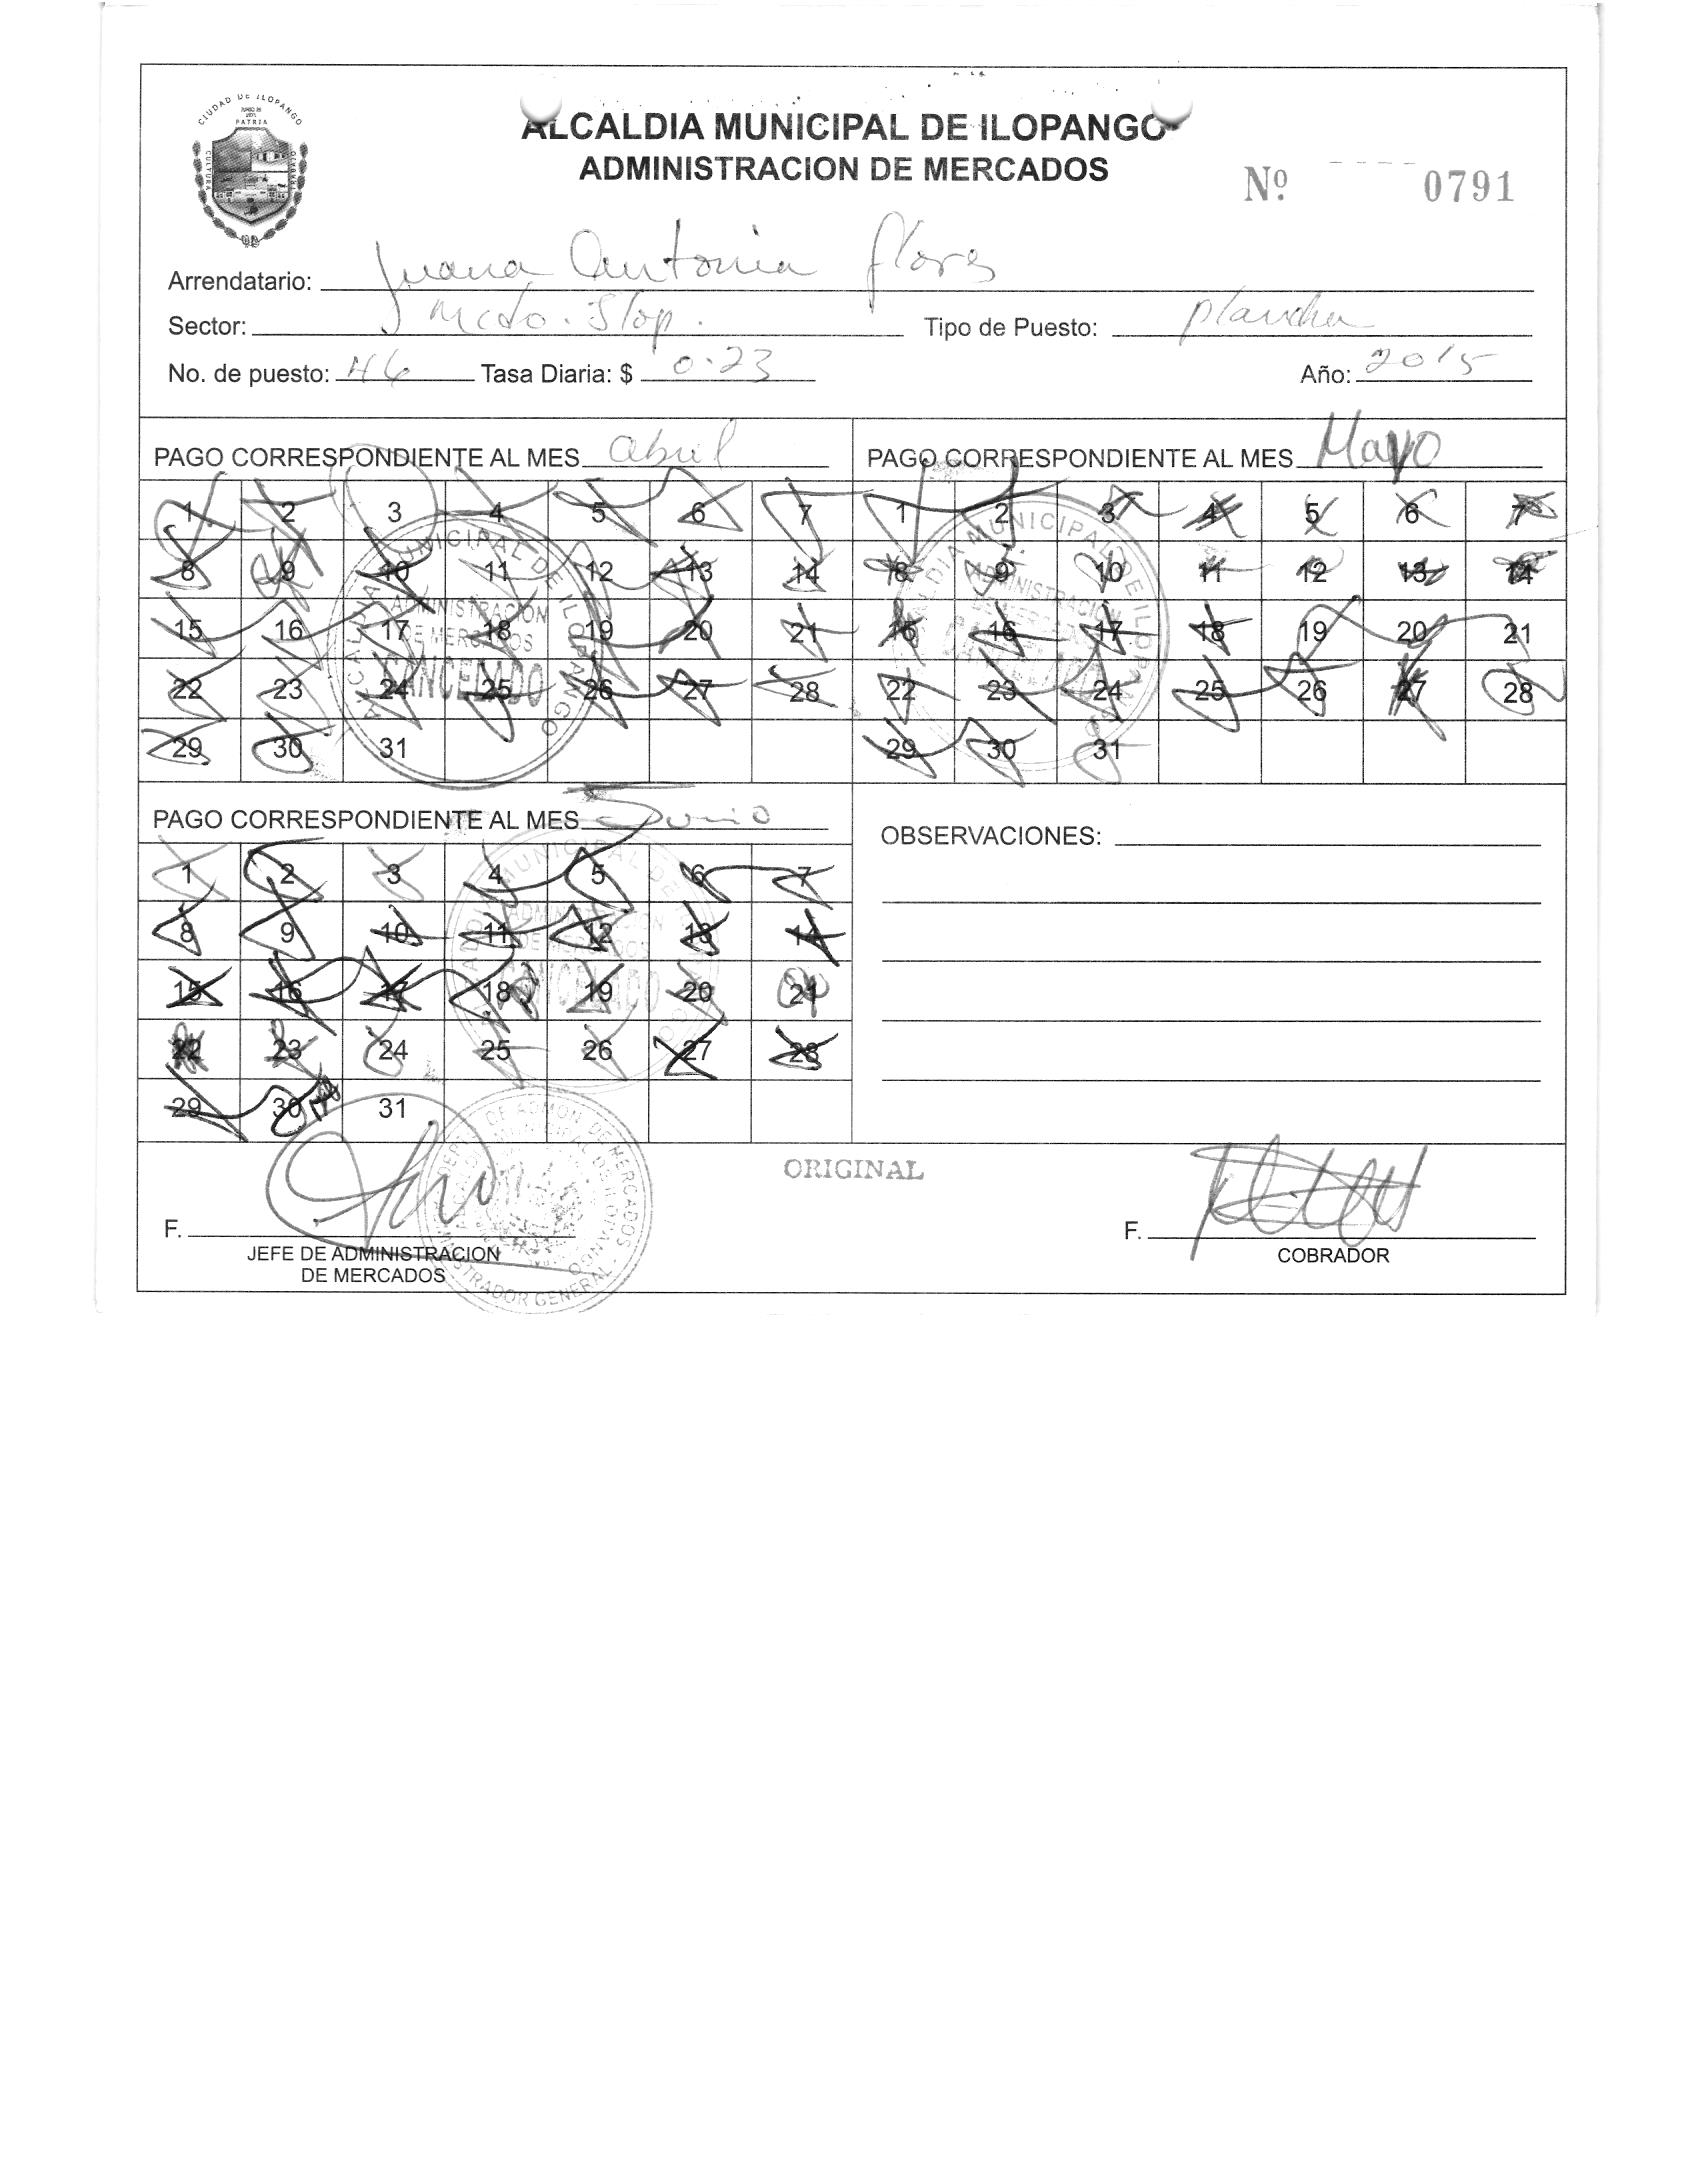 CIUDAD DE ILOPANGO
PATRIA
CULTURA
ALCALDIA MUNICIPAL DE ILOPANGO
ADMINISTRACION DE MERCADOS
Nº 0791
Arrendatario: Juana Antonia Flores
Sector: Mcdo. Ilop. Tipo de Puesto: plancha
No. de puesto: 46 Tasa Diaria: $ 0.23 Año: 2015
PAGO CORRESPONDIENTE AL MES abril
1 2 3 4 5 6 7
8 9 10 11 12 13 14
15 16 17 18 19 20 21
22 23 24 25 26 27 28
29 30 31
ALCALDIA MUNICIPAL DE ILOPANGO
ADMINISTRACION
DE MERCADOS
CANCELADO
PAGO CORRESPONDIENTE AL MES Mayo
1 2 3 4 5 6 7
8 9 10 11 12 13 14
15 16 17 18 19 20 21
22 23 24 25 26 27 28
29 30 31
ALCALDIA MUNICIPAL DE ILOPANGO
ADMINISTRACION
DE MERCADOS
CANCELADO
PAGO CORRESPONDIENTE AL MES Junio
1 2 3 4 5 6 7
8 9 10 11 12 13 14
15 16 17 18 19 20 21
22 23 24 25 26 27 28
29 30 31
ADMINISTRACION
DE MERCADOS
CANCELADO
OBSERVACIONES:
ORIGINAL
F.
JEFE DE ADMINISTRACION
DE MERCADOS
DE ADMON. DE MERCADOS
ADMINISTRADOR GENERAL
F.
COBRADOR